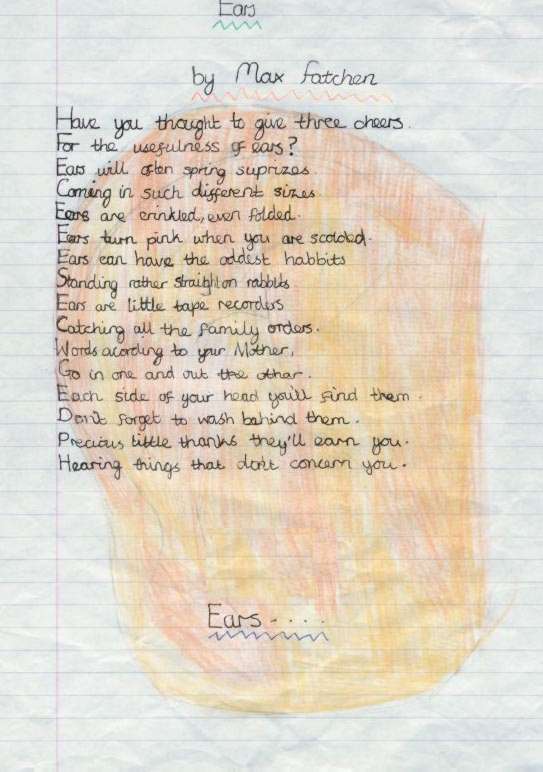 Ears
by Max Fatchen
Have you thought to give three cheers.
For the usefulness of ears?
Ears will often spring suprizes.
Coming in such different sizes.
Ears are crinkled, even folded.
Ears turn pink when you are scolded.
Ears can have the oddest habbits
Standing rather straight on rabbits
Ears are little tape recorders
Catching all the family orders.
Words acording to your Mother,
Go in one and out the other.
Each side of your head you'll find them.
Don't forget to wash behind them.
Precious little thanks they'll earn you.
Hearing things that don't concern you.
Ears.....